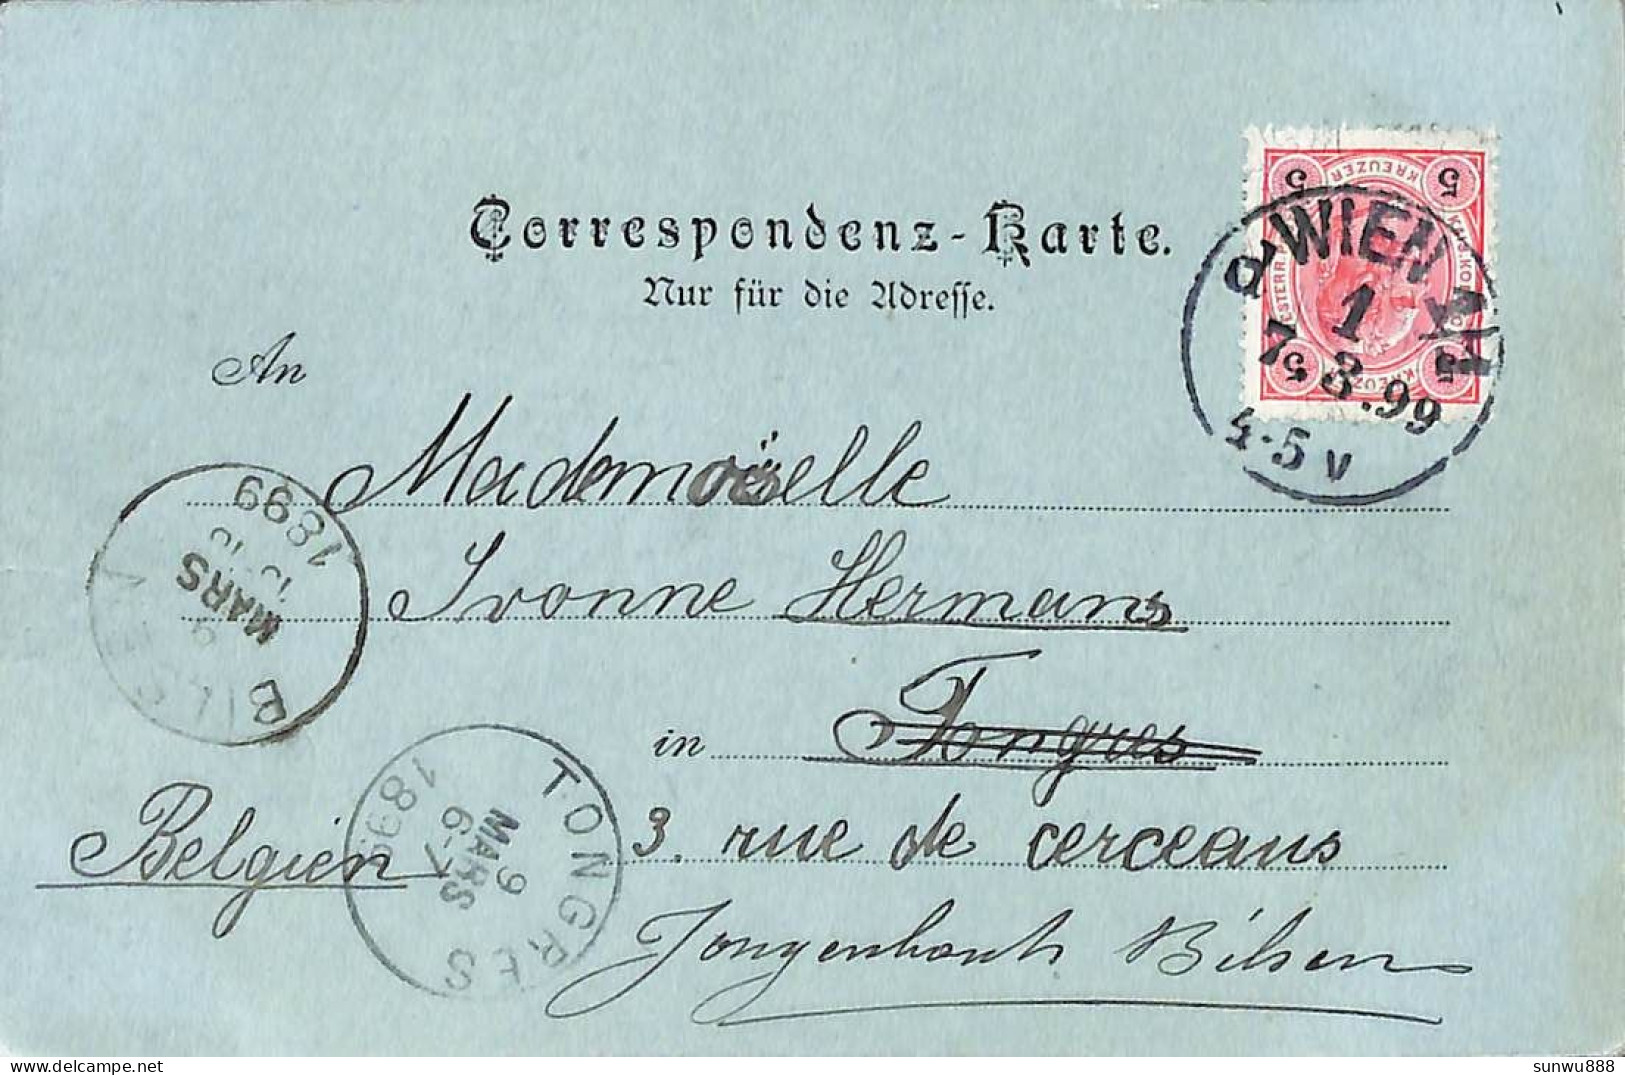 Correspondenz-Karte.
Nur für die Adresse.
An
Mademoiselle
Ivonne Hermans
in Tongres
3. rue de cerceaus
Belgien
Jongenbosch Bilsen
WIEN 1/1
7 3.99
4-5 V
5 KREUZER 5
5 KREUZ 5
BILSEN
9
MARS
1899
TONGRES
9
MARS
6-7
1899
delcampe.net
sunwu888